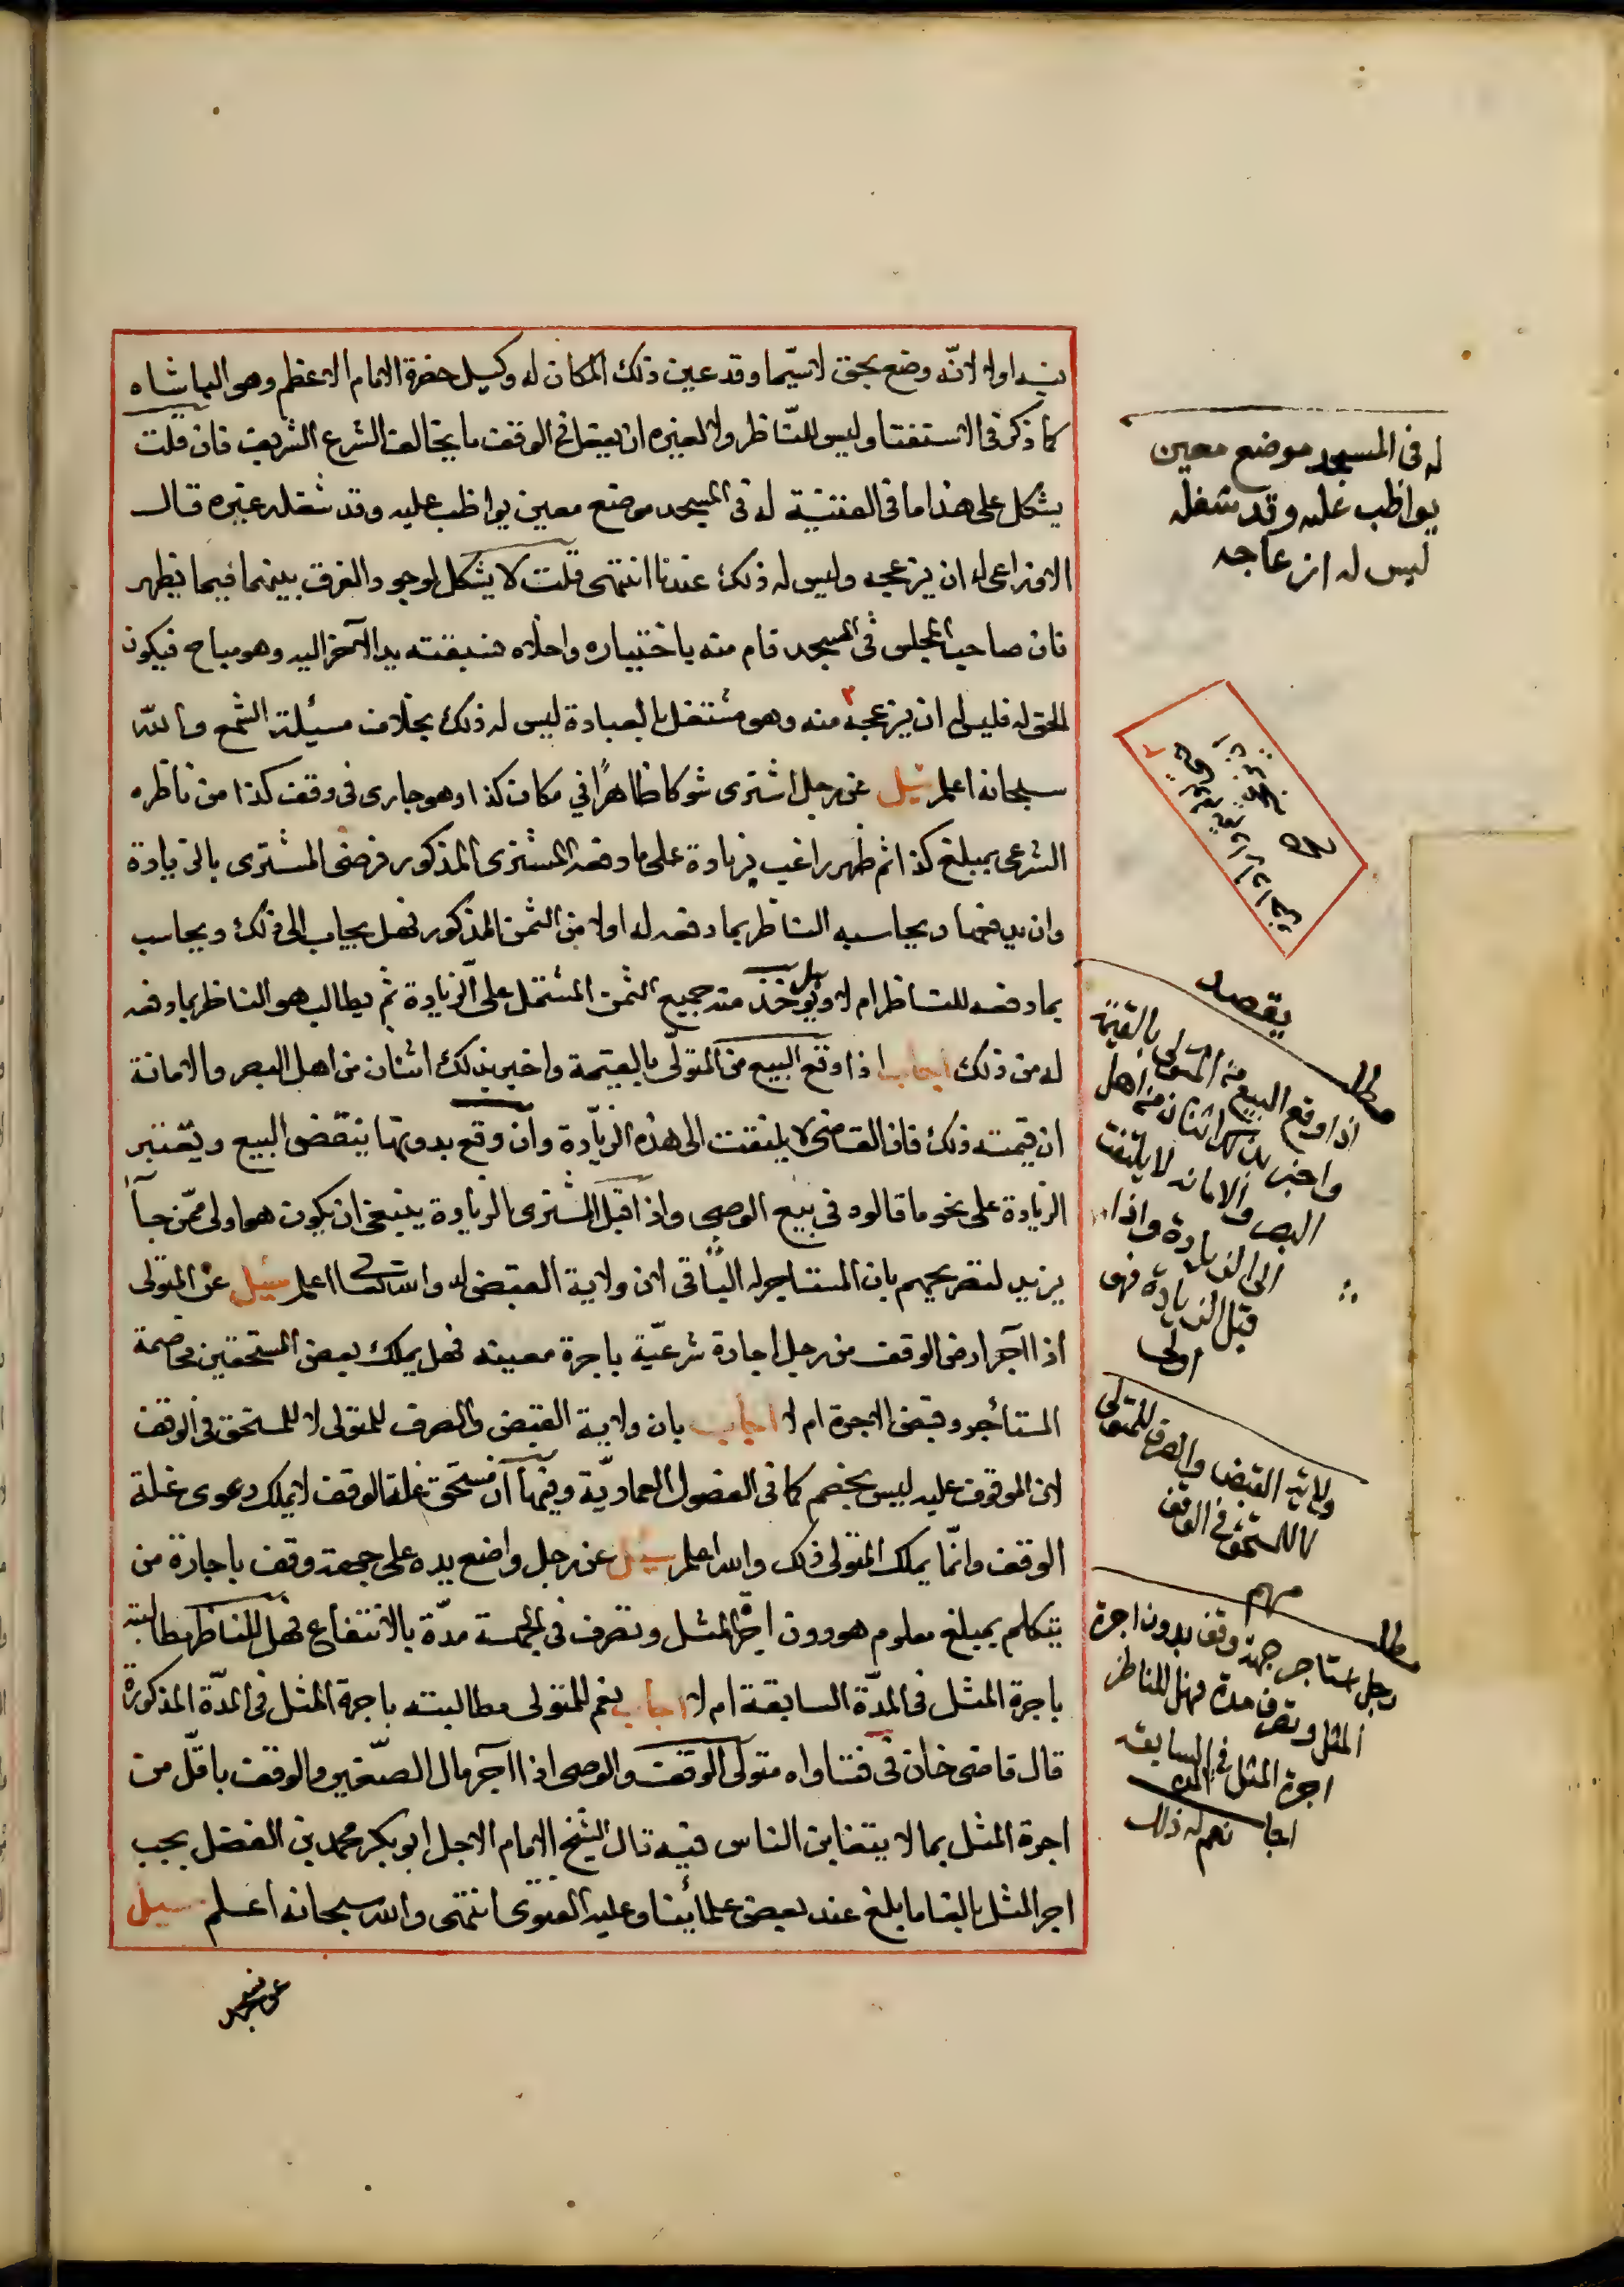 فيه اولا لانّه وضع بحق لاسيّما وقد عين ذلك المكان له وكيل حضرة الامام الاعظم وهو الباشاه
كما ذكر فى الاستفتا وليس للنّاظر ولا لغيره ان يفعل فى الوقف ما يخالف الشرع الشريف فان قلت
يشكل على هذا ما فى القنية له فى المسجد موضع معين يواظب عليه وقد شغله غيره قال
الاوزاعى له ان يزعجه وليس له ذلك عندنا انتهى قلت لا يشكل لوجود الفرق بينهما فيما يظهر
فان صاحب المجلس فى المسجد قام منه باختياره واخلاه فسبقته يد الآخر اليه وهو مباح فيكون
الحق له فليس له ان يزعجه ٢ منه وهو مشتغل بالعبادة ليس له ذلك بخلاف مسيلة الشمع والله
سبحانه اعلم سيل عن رجل اشترى شوكا ظاهرًا في مكان كذا وهو جارى فى وقف كذا من ناظره
الشرعى بمبلغ كذا ثم ظهر راغب بزيادة على ما دفعه المشترى المذكور فرضى المشترى بالزيادة
وان يدفعها ويحاسبه الناظر بما دفعه له اولا من الثمن المذكور فهل يجاب الى ذلك ويحاسب
بما دفعه للناظر ام لا بل ويوخذ منه جميع الثمن المشتمل على الزيادة ثم يطالب هو الناظر بما دفعه
له من ذلك اجاب اذا وقع البيع من المتولّى بالقيمة واخبر بذلك اثنان من اهل البصر والامانة
ان قيمته ذلك فان القاضى لا يلتفت الى هذه الزيادة وان وقع بدونها ينقض البيع ويعتبر
الزيادة على نحو ما قالوه فى بيع الوصى واذا قبل المشترى الزيادة ينبغى ان يكون هو اولى ممّن جاٰ
يزيد لتصريحهم بان المستاجر له الباقى لان ولاية القبض له والله تعالى اعلم سئيل عن المتولى
اذا اآجر ارض الوقف من رجل اجارة شرعيّة باجرة معينه فهل يملك بعض المستحقين مخاصمة
المستأجر وقبض الاجرة ام لا اجاب بان ولاية القبض والصرف للمتولى لا للمستحق فى الوقف
لان الموقوف عليه ليس بخصم كما فى الفصول العماديّة وفيها ان مستحق غلة الوقف لا يملك دعوى غلة
الوقف وانّما يملك المتولى ذلك والله اعلم سيل عن رجل واضع يده على جهة وقف باجارة من
يتكلم بمبلغ معلوم هو دون اجرة المثل وتصرف فى الجهة مدّة بالانتفاع فهل للناظر مطالبته
باجرة المثل فى المدّة السابقة ام لا اجاب نعم للمتولى مطالبته باجرة المثل فى المدّة المذكورة
قال قاضى خان فى فتاواه متولى الوقف والوصى اذا اآجر مال الصّغير والوقف باقلّ من
اجرة المثل بما لا يتغابن الناس فيه قال الشيخ الامام الاجل ابو بكر محمد بن الفضل يجب
اجر المثل بالغا ما بلغ عند بعض علمائنا وعليه الفتوى انتهى والله سبحانه اعلم سيل
له فى المسجد موضع معين
يواظب عليه وقد شغله
ليس له ازعاجه
يقصد
مطلـ
اذا وقع البيع من المتولى بالقيمة
واخبر بذلك اثنان من اهل
البصر والامانه لا يلتفت
الى الزيادة واذا
قبل الزيادة فهو
اولى
ولاية القبض والصرف للمتولى
لا للمستحق فى الوقف
مهم
مطلـ
رجل استاجر جهة وقف بدون اجرة
المثل وتصرف مدة فهل للناظر
اجرة المثل فى المدة السابقه
اجاب نعم له ذلك